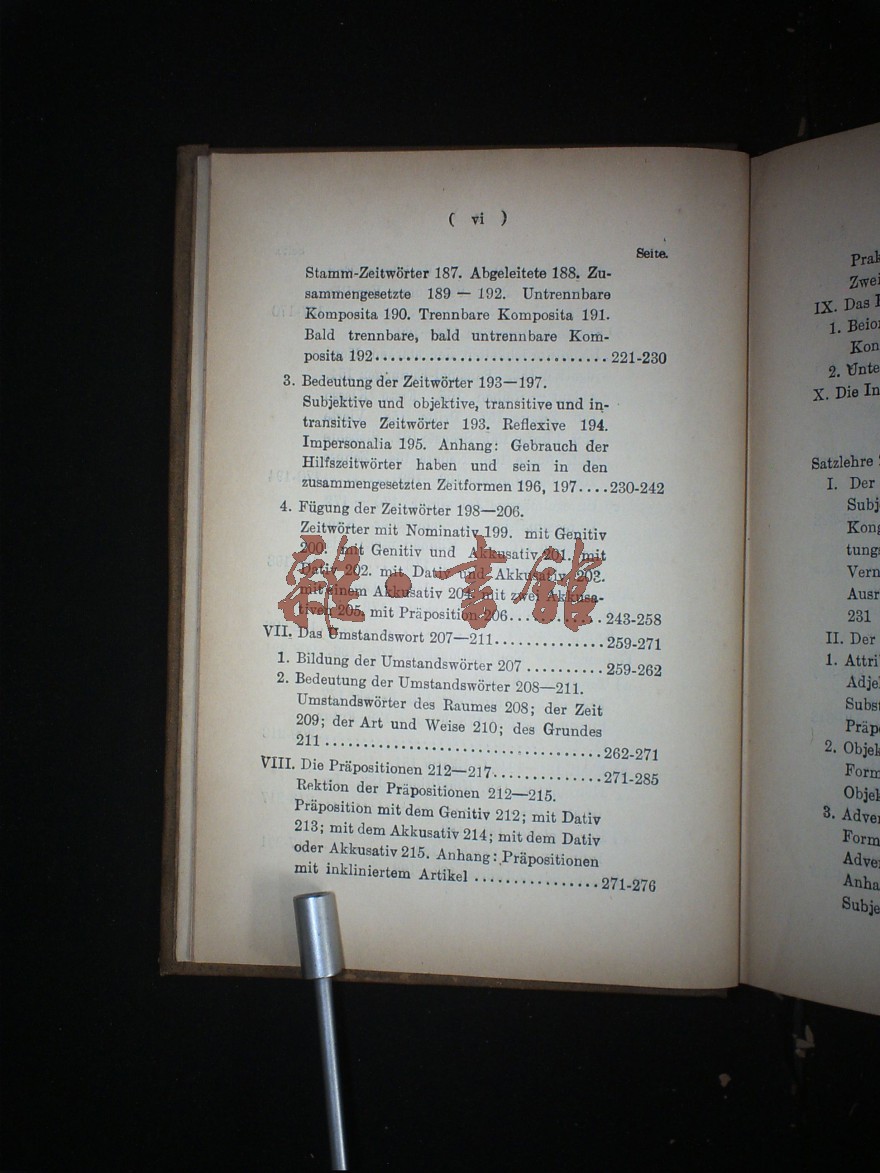 ( vi )
Seite.
Stamm-Zeitwörter 187. Abgeleitete 188. Zu-
sammengesetzte 189 — 192. Untrennbare
Komposita 190. Trennbare Komposita 191.
Bald trennbare, bald untrennbare Kom-
posita 192.............................221-230
3. Bedeutung der Zeitwörter 193—197.
Subjektive und objektive, transitive und in-
transitive Zeitwörter 193. Reflexive 194.
Impersonalia 195. Anhang: Gebrauch der
Hilfszeitwörter haben und sein in den
zusammengesetzten Zeitformen 196, 197....230-242
4. Fügung der Zeitwörter 198—206.
Zeitwörter mit Nominativ 199. mit Genitiv
200. mit Genitiv und Akkusativ 201. mit
Dativ 202. mit Dativ und Akkusativ 203.
mit einem Akkusativ 204. mit zwei Akkusa-
tiven 205. mit Präposition 206............243-258
VII. Das Umstandswort 207—211..............259-271
1. Bildung der Umstandswörter 207 ..........259-262
2. Bedeutung der Umstandswörter 208—211.
Umstandswörter des Raumes 208; der Zeit
209; der Art und Weise 210; des Grundes
211 ..................................262-271
VIII. Die Präpositionen 212—217..............271-285
Rektion der Präpositionen 212—215.
Präposition mit dem Genitiv 212; mit Dativ
213; mit dem Akkusativ 214; mit dem Dativ
oder Akkusativ 215. Anhang: Präpositionen
mit inkliniertem Artikel ................271-276
雜·書館
Zwei
IX. Das
1. Beior
Kon
2. Unte
X. Die In
Satzlehre
I. Der
Subj
Kong
tung
Vern
Ausr
231
II. Der
1. Attri
Adje
Subst
Präp
2. Objek
Form
Objek
3. Adver
Form
Adve
Anha
Subje